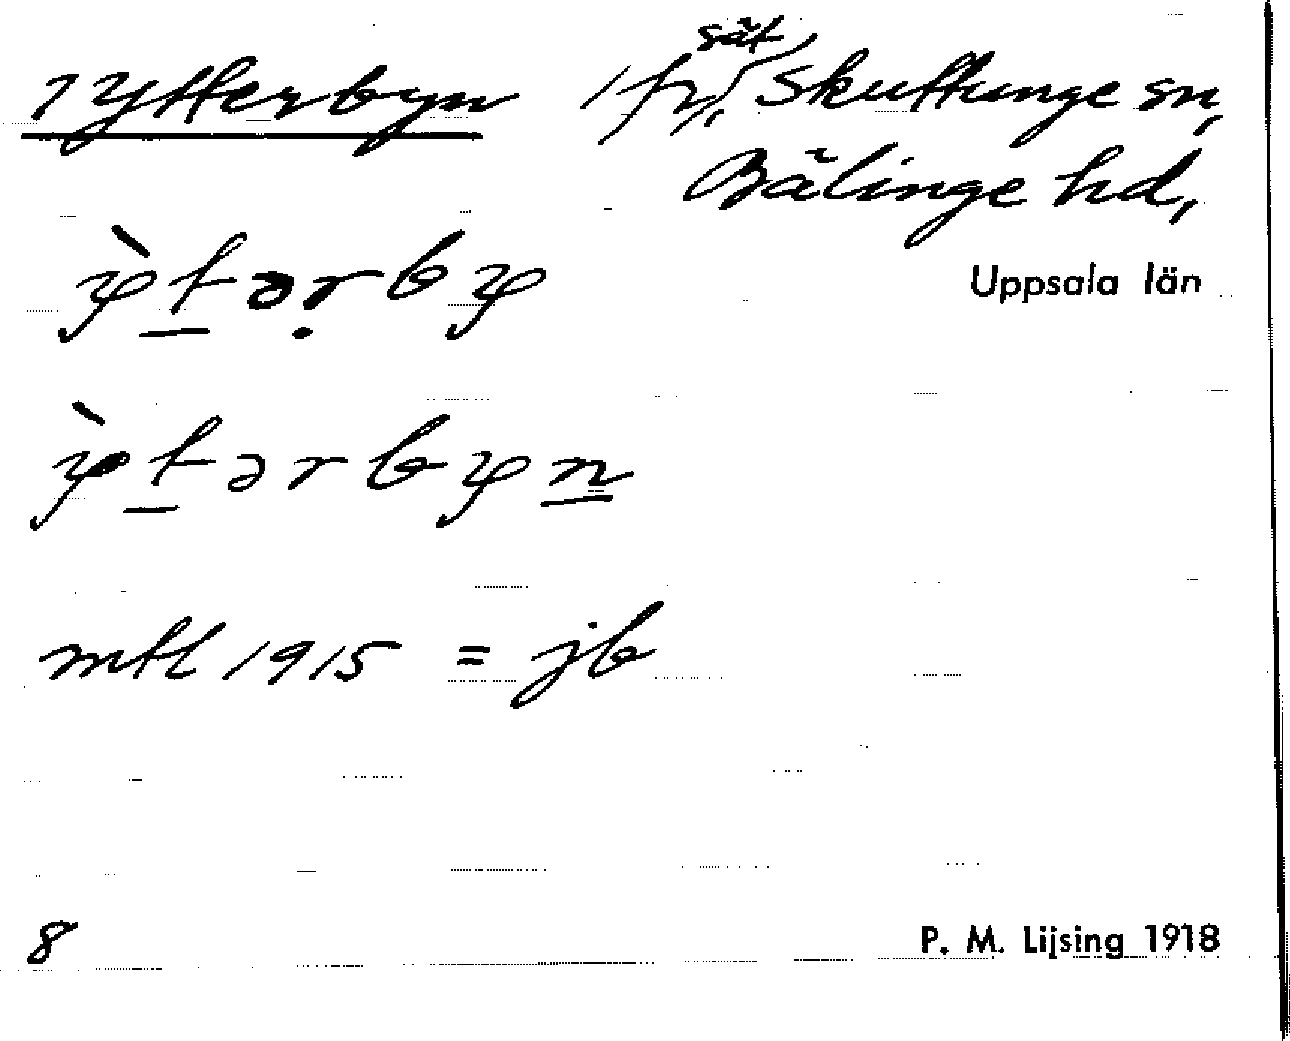 1 Ytterbyn 1 fr, sät, Skuttunge sn,
Bälinge hd,
Uppsala län
ỳt̲ərḅy
ỳt̲ərbyn̲
mtl 1915 = jb
8 P. M. Lijsing 1918